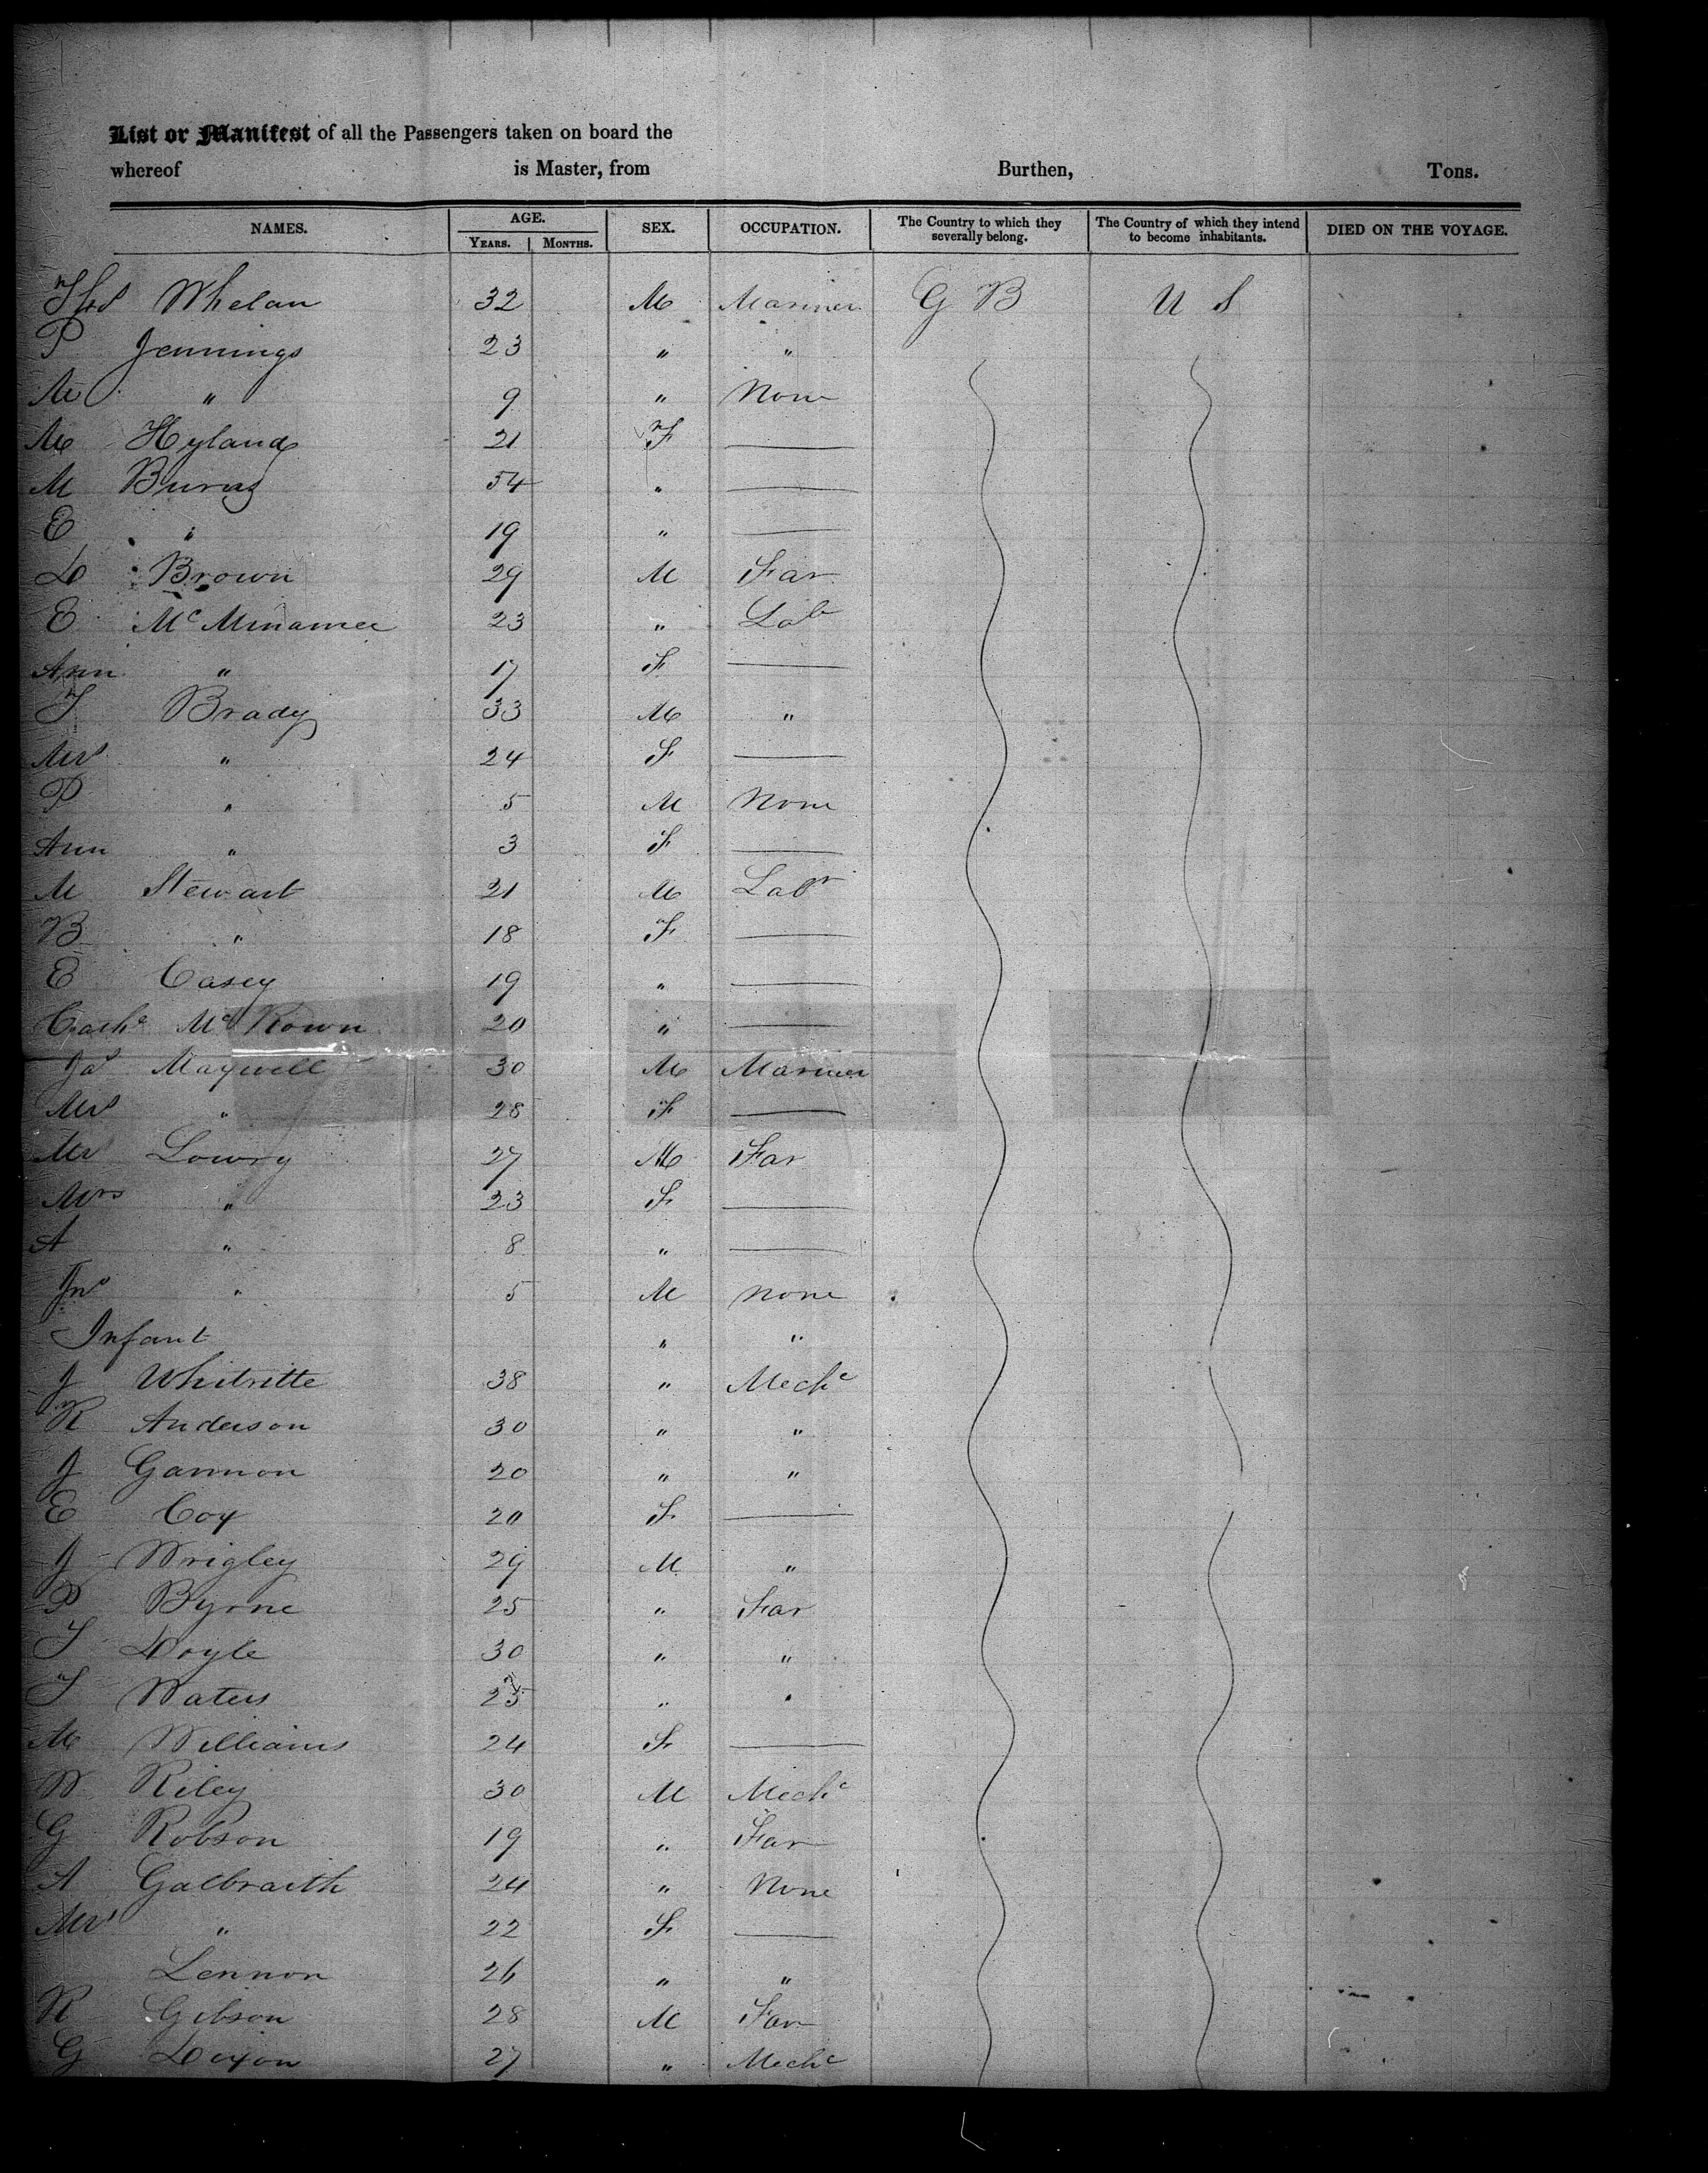 List or Manifest of all the Passengers taken on board the
whereof is Master, from Burthen, Tons.
NAMES. AGE. SEX. OCCUPATION. The Country to which they severally belong. The Country of which they intend to become inhabitants. DIED ON THE VOYAGE.
YEARS. MONTHS.
Thos Whelan 32 M Mariner G B U S
P Jennings 23 " "
M " 9 " None
M Hyland 21 F —
M Burns 54 " —
E " 19 " —
D Brown 29 M Far
E Mc Minamee 23 " Lab
Ann " 17 F —
T Brady 33 M "
Mrs " 24 F —
P " 5 M None
Ann " 3 F —
M Stewart 21 M Labr
B " 18 F —
E Casey 19 " —
Cathe Mc Kown 20 " —
Jas Maxwell 30 M Mariner
Mrs " 28 F —
Mr Lowry 27 M Far
Mrs " 23 F —
A " 8 " —
Jno " 5 M none
Infant " "
J Whitritte 38 " Mechc
R Anderson 30 " "
J Gannon 20 " "
E Cox 20 F —
J Wrigley 29 M "
P Byrne 25 " Far
T Doyle 30 " "
T Waters 25 " "
M Williams 24 F —
W Riley 30 M Mechc
G Robson 19 " Far
A Galbraith 24 " None
Mrs " 22 F —
Lennon 26 " "
R Gibson 28 M Far
G Dixon 27 " Mechc